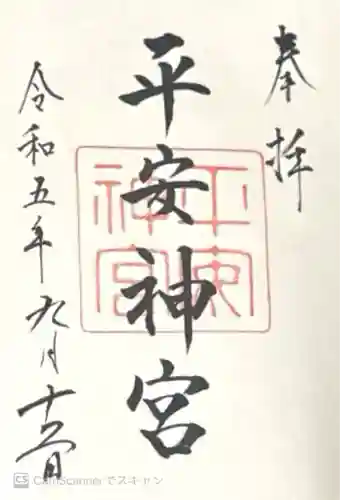 奉拝
平安神宮
平安神宮
令和五年九月十六日
CS CamScanner でスキャン